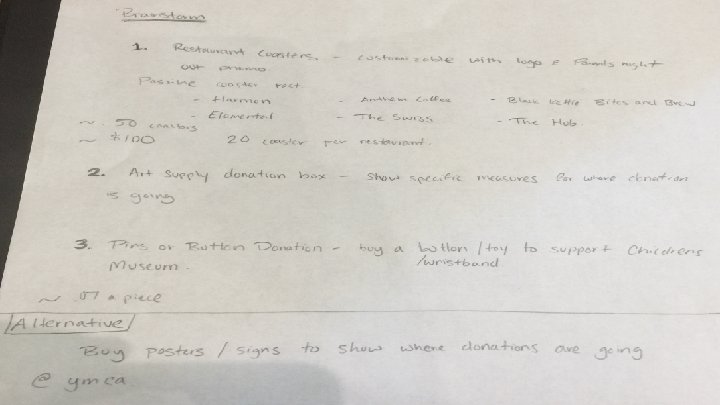 Brainstorm
1. Restaurant Coasters. - customizable with logo & Parents night
out promo
Possible coaster rest.
- Harmon - Anthem Coffee - Black Kettle Bites and Brew
- Elemental - The Swiss - The Hub.
~ . 50 coasters
~ $100 20 coaster per restaurant.
2. Art supply donation box - Show specific measures for where donation
is going
3. Pins or Button Donation - buy a button / toy to support Childrens
/wristband
Museum.
~ .07 a piece
Alternative
Buy posters / signs to show where donations are going
@ ymca